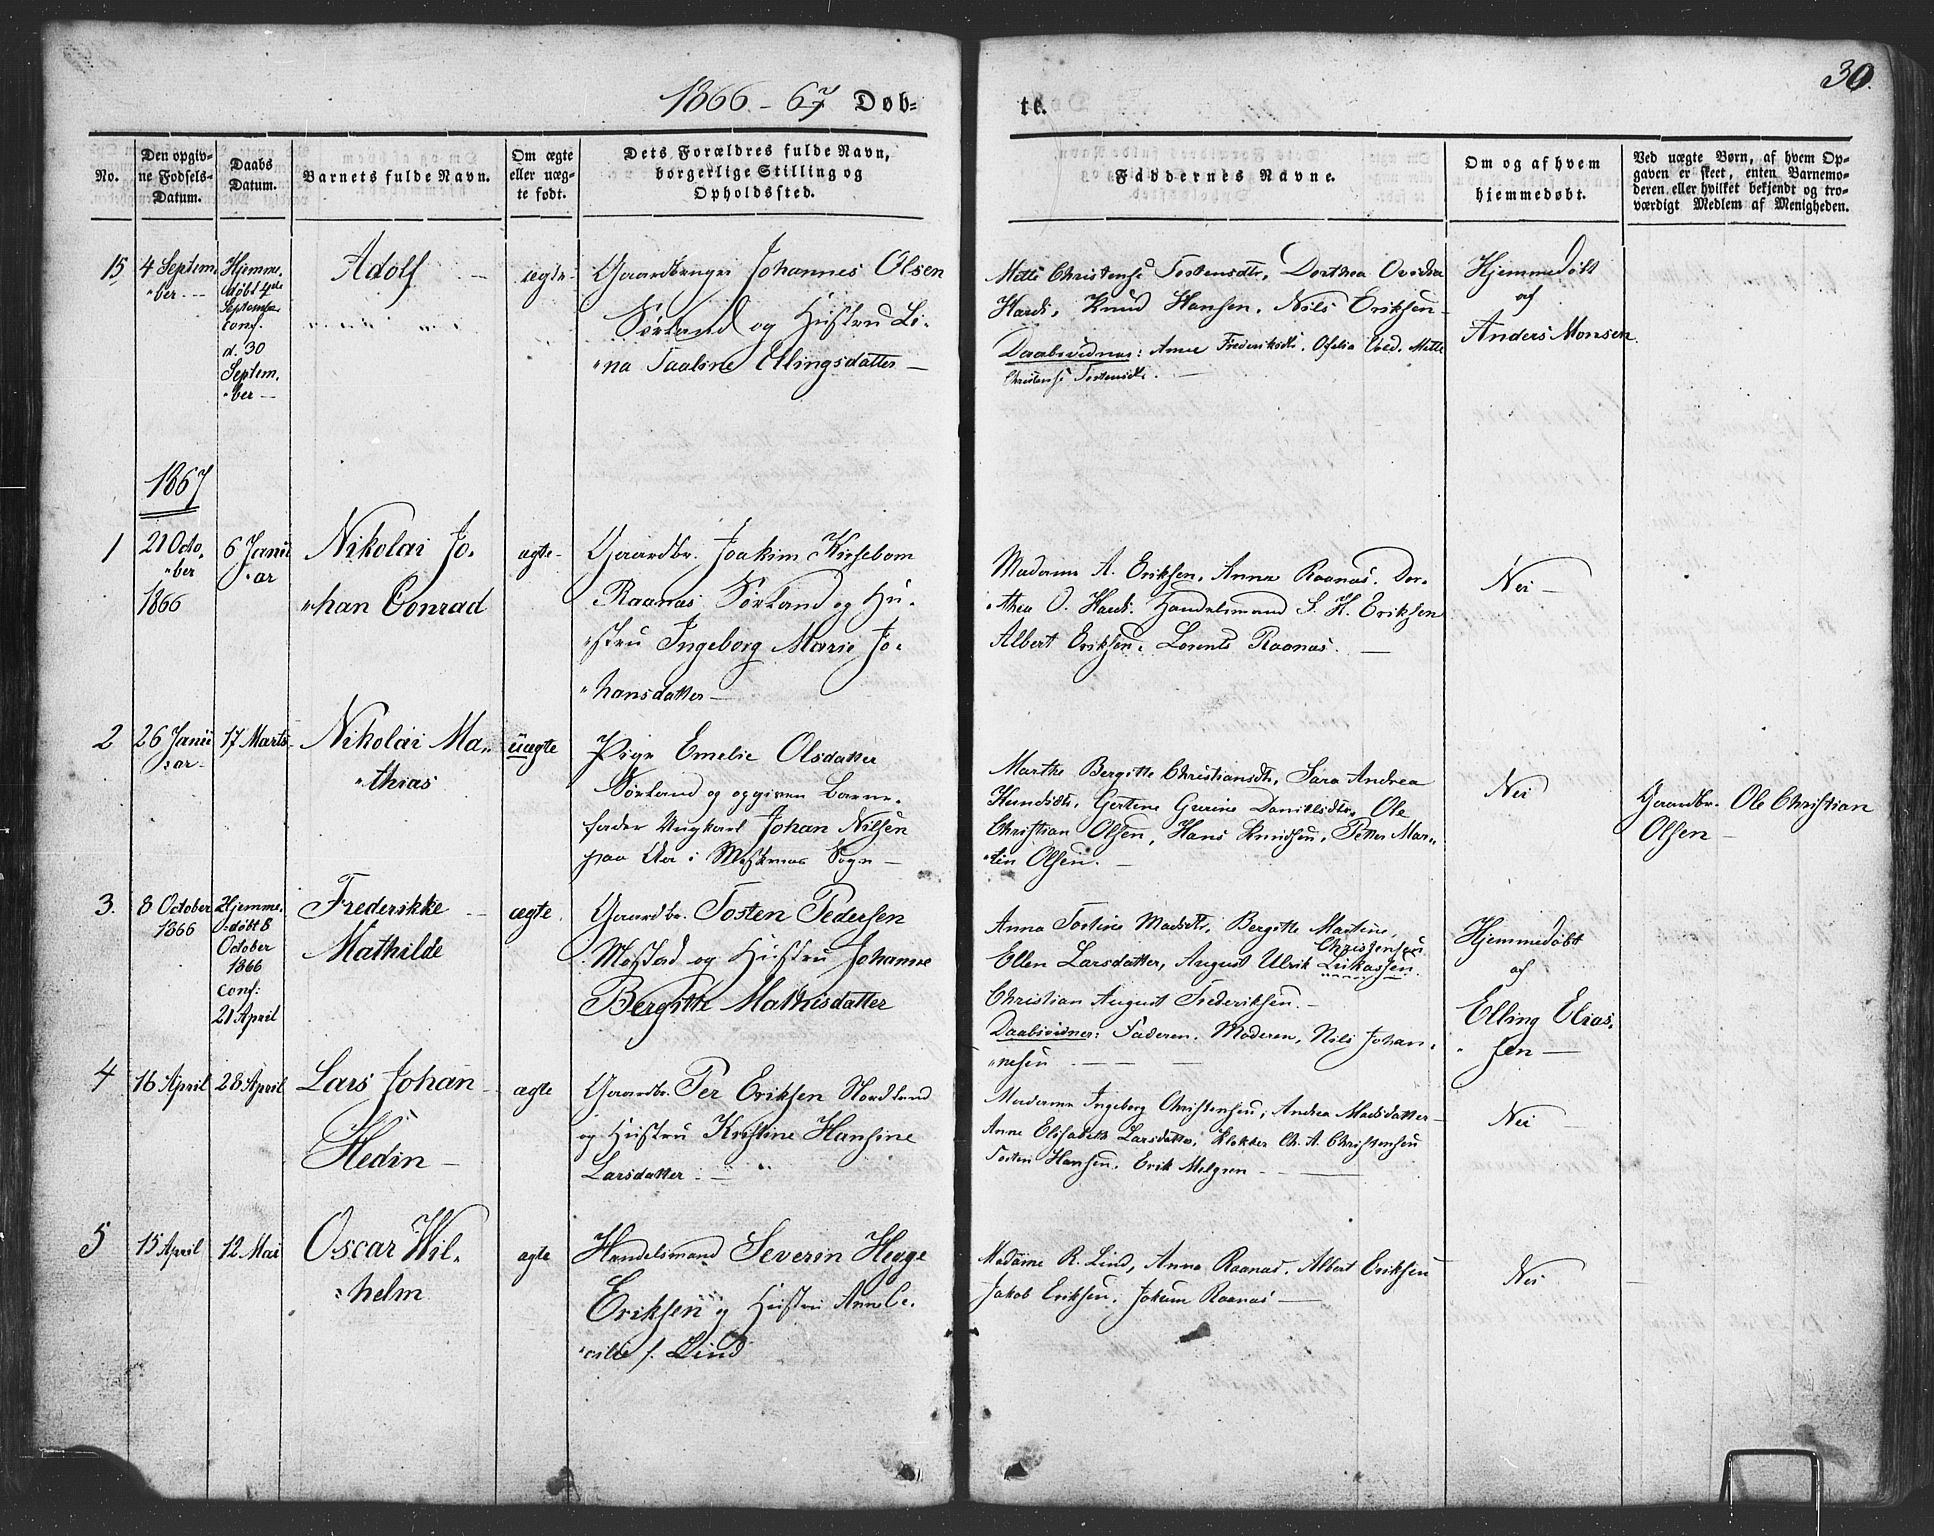 30.
1866-67 Døb-
te.
No.
Den opgiv-
ne Fødsels-
Datum.
Daabs
Datum.
Barnets fulde Navn.
Om ægte
eller uæg-
te født.
Dets Forældres fulde Navn,
borgerlige Stilling og
Opholdssted.
Faddernes Navne.
Om og af hvem
hjemmedøbt.
Ved uægte Børn, af hvem Op-
gaven er skeet, enten Barnemo-
deren eller hvilket bekjendt og tro-
værdigt Medlem af Menigheden.
15
4 Septem
"ber.
Hjemme-
døbt 4de
September
conf.
d. 30
Septem.
"ber
Adolf
ægte
Gaardbruger Johannes Olsen
Sørland og Hustru Li-
"na Paaline Ellingsdatter
Mette Christense Tostensdtr, Dorthea Ovidia
Hardi, Knud Hansen, Nils Eriksen
Daabsvidner: Anne Frederiksdtr. Ofelia Mette
Christense Tostensdtr.
Hjemmedøbt
af
Anders Monsen
1867
1
21 Octo-
"ber
1866
6 Janu
"ar
Nikolai Jo-
"han Conrad
ægte
Gaardbr. Joakim Kirsebom
Raanas Sørland og Hu-
"stru Ingeborg Marie Jo-
"hansdatter
Madame A. Eriksen, Anna Raanas. Dor-
"thea O. Hardi. Handelsmand S. H. Eriksen
Albert Eriksen. Lorents Raanas.
Nei
2
26 Janu
"ar
17 Marts
Nikolai Ma-
"thias
uægte
Pige Emelie Olsdatter
Sørland og opgiven Barne-
fader Ungkarl Johan Nilsen
paa Aa i Moskenas Sogn
Marthe Bergitte Christiansdtr, Sara Andrea
Knudsdtr, Gertine Gurine Danielsdtr, Ole
Christian Olsen, Hans Knudsen, Petter Mar-
"tin Olsen.
Nei
Gaardbr. Ole Christian
Olsen
3.
8 October
1866
Hjemme-
døbt 8
October
1866
Conf:
21 April
Frederikke
Mathilde
ægte.
Gaardbr. Tosten Pedersen
Mostad og Hustru Johanne
Bergitte Mathisdatter
Anna Tostine Madsdtr, Bergitte Martine,
Christensen
Ellen Larsdatter, August Ulrik Lukassen.
Christian August Frederiksen.
Daabsvidner: Faderen, Moderen, Nils Johan-
"nesen
Hjemmedøbt
af
Elling Elias-
"sen
4
16 April
28 April
Lars Johan
Hedin
ægte
Gaardbr. Per Eriksen Nordland
og Hustru Kristine Hansine
Larsdatter.
Madame Ingeborg Christensen, Andrea Madsdatter
Anne Elisabeth Larsdatter, Klokker Ch. A. Christensen
Tosten Hansen. Erik Melgren
Nei
5
15 April
12 Mai
Oscar Wil-
"helm
ægte
Handelsmand Severin Hegge
Eriksen og Hustru Anne Ce-
"cilie f. Lind
Madame R. Lind, Anna Raanas. Albert Eriksen
Jakob Eriksen. Jokum Raanas
Nei